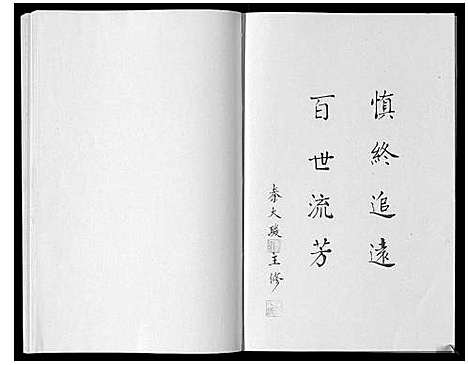 慎終追遠
百世流芳
秦大駿 主修